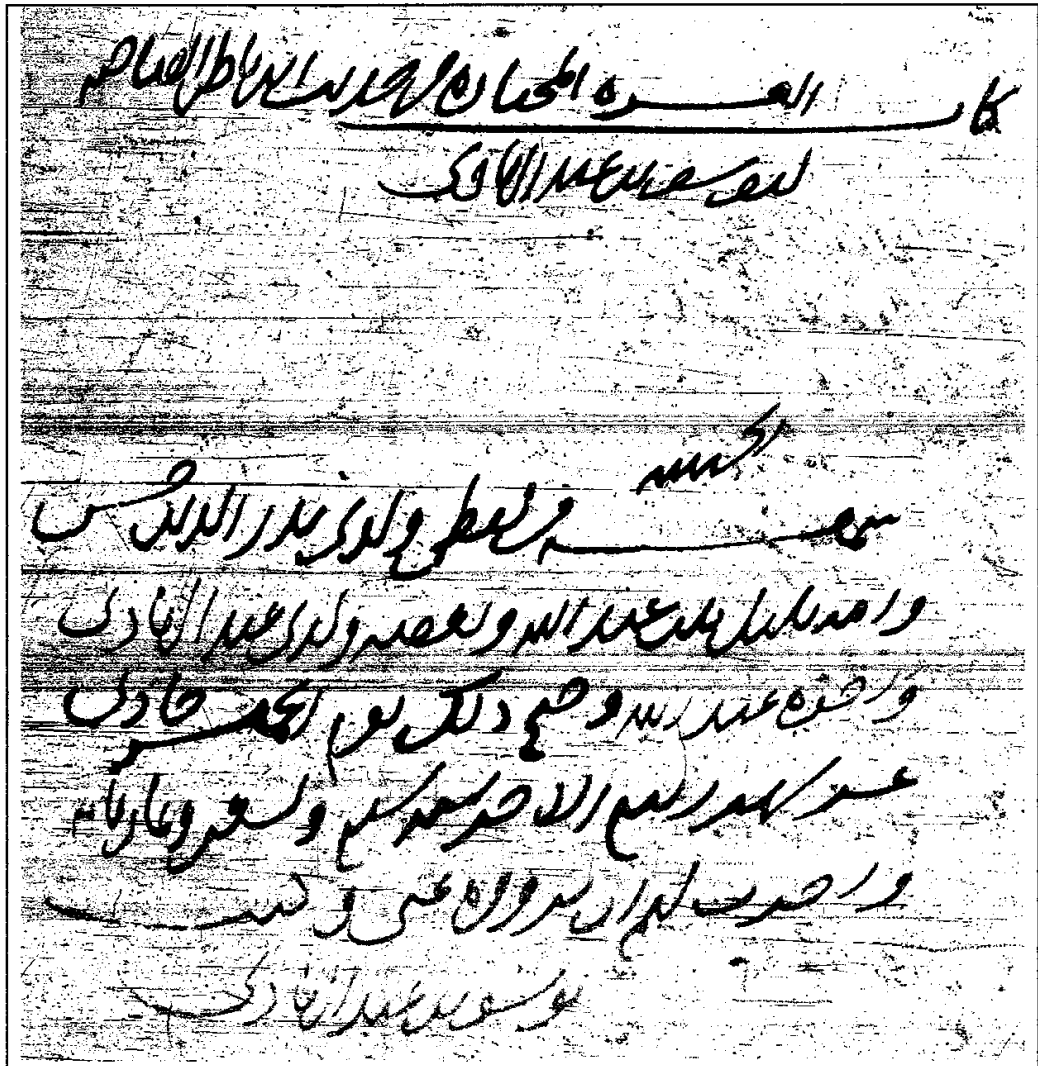 كتاب العشرة المختارة من حديث ابن ناظر الصاحبة
ليوسف بن عبد الهادي
الحمد لله
سمعه من لفظي ولدي بدر الدين حسن
وامه بلبل بنت عبد الله وبعضه ولدي عبد الهادي
واخوه عبد الله وصح ذلك يوم حادي
عشر شهر ربيع الاخر سنة سبع وتسعين وثمان مائة
واجزت لهم ان يرووه عني وكتب
يوسف بن عبد الهادي